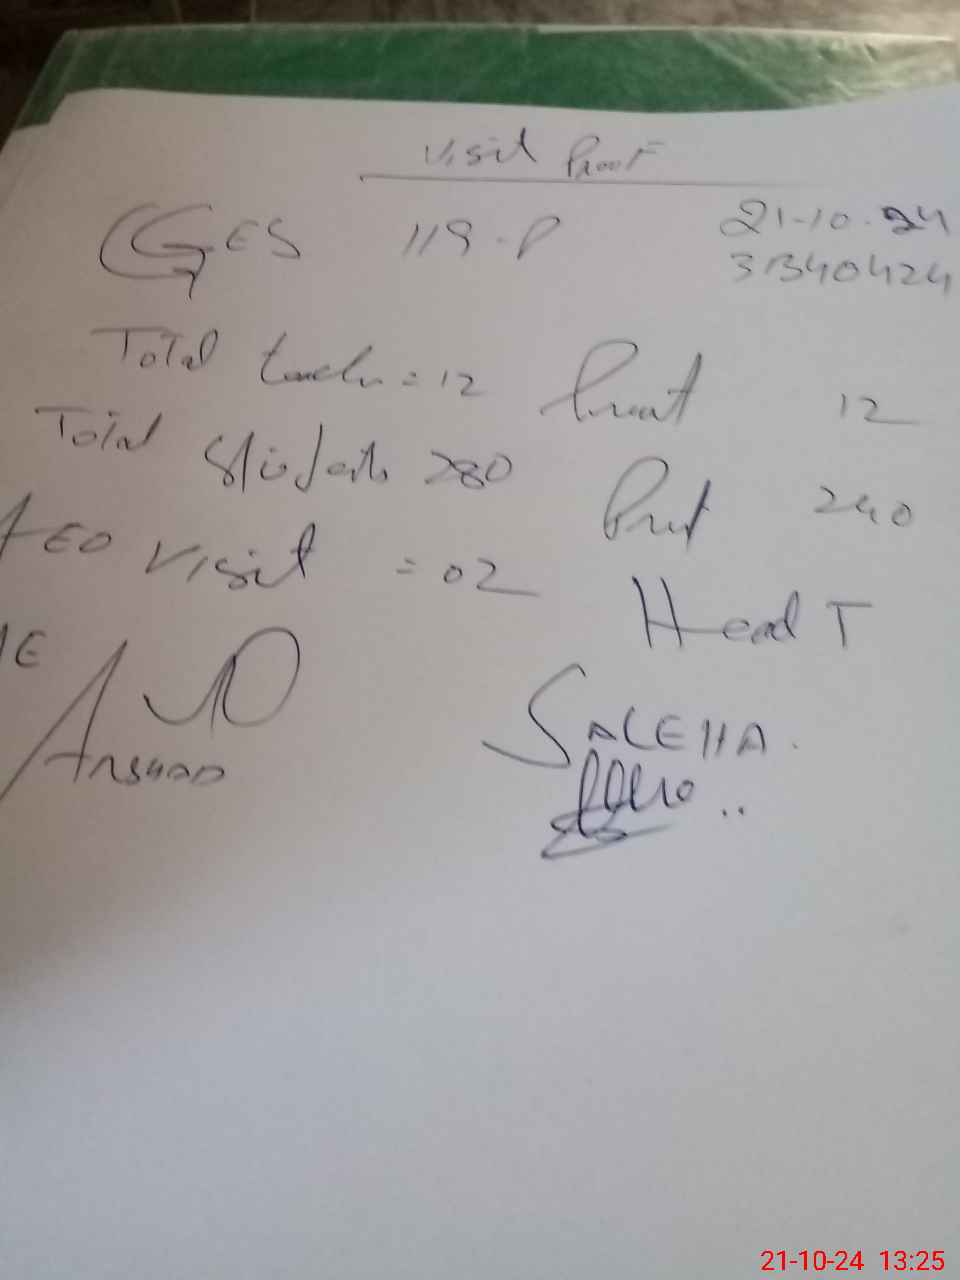 Visit Proof
GGES 119-P 21-10-24
31340424
Total teach = 12 Present 12
Total Students 280 Prest 240
AEO Visit = 02
Head T
SALEHA
ARSHAD
21-10-24 13:25